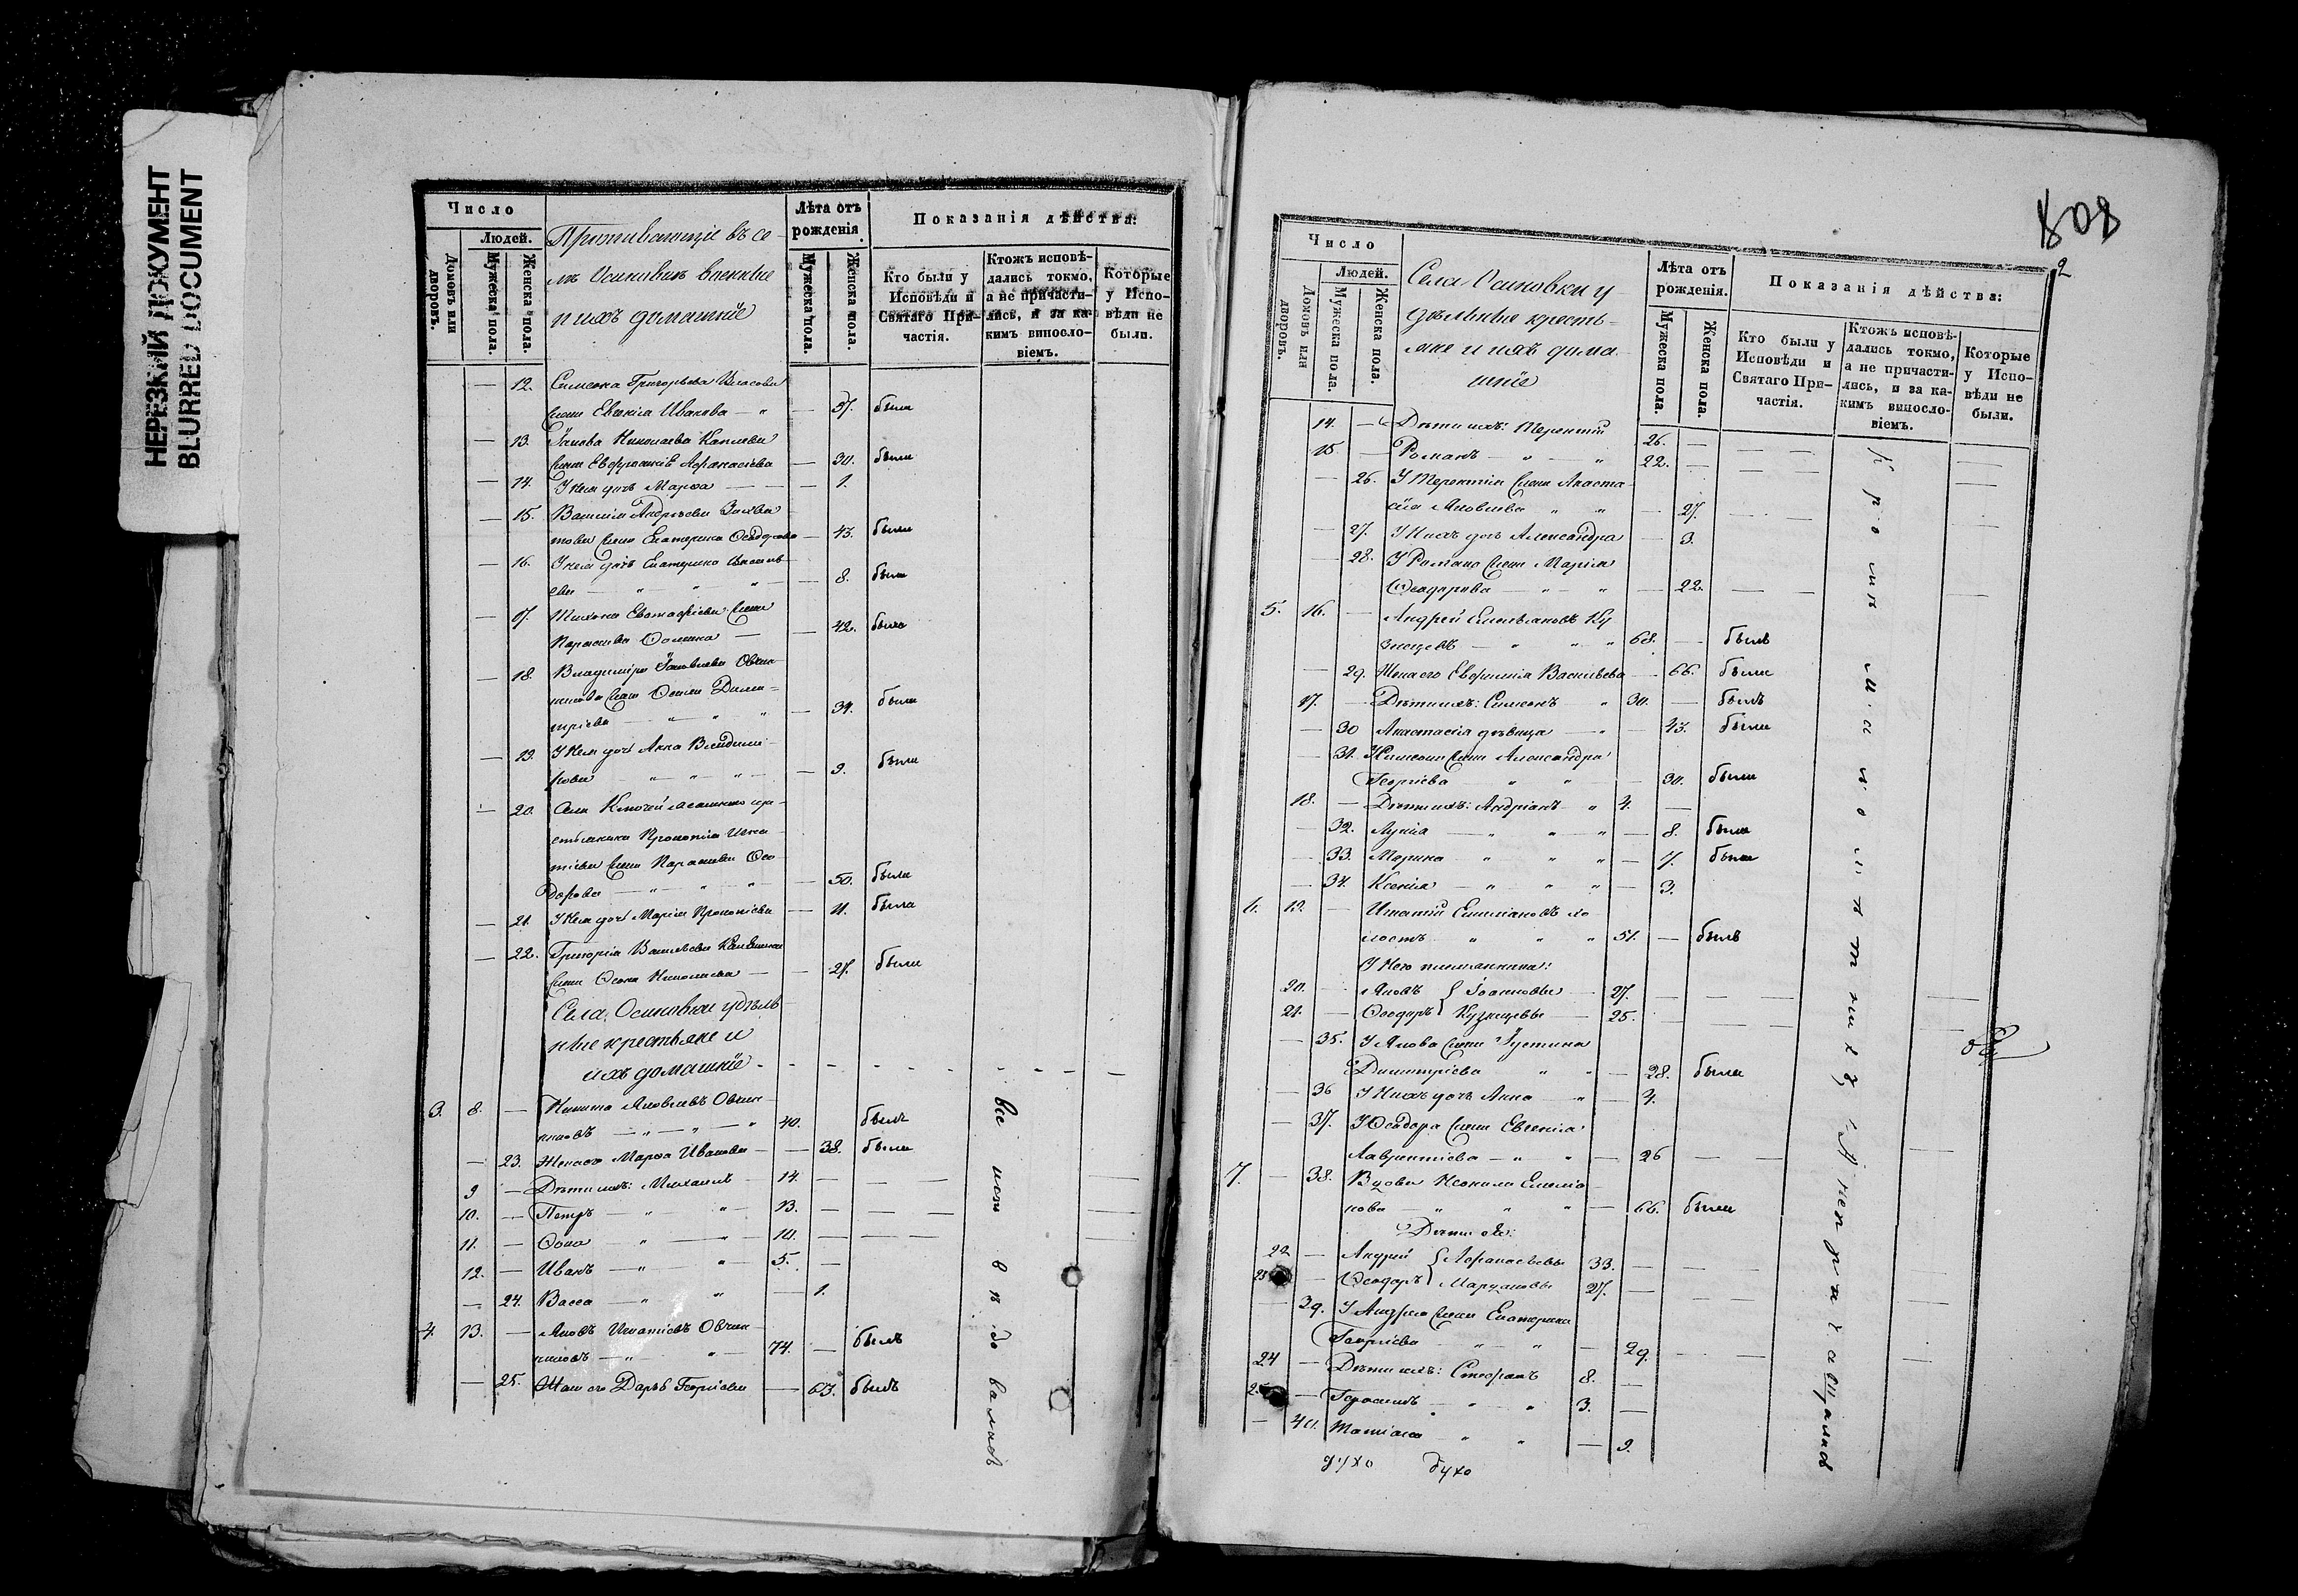 НЕРЕЗКИЙ ДОКУМЕНТ
BLURRED DOCUMENT
Число
Людей.
Домовъ или дворовъ.
Мужеска пола.
Женска пола.
Проживающіе въ се-
лѣ Осиновкѣ военные
и ихъ домашніе
Лѣта отъ рожденія.
Мужеска пола.
Женска пола.
Показанія дѣйства:
Кто были у Исповѣди и Святаго При-частія.
Ктожъ исповѣ-дались токмо, а не причасти-лись, и за ка-кимъ винословіемъ.
Которые у Испо-вѣди не были.
— 12. Симеона Григорьева Власова
жена Евфимія Иванова — 37. была
— 13. Іакова Николаева
жена Евфросинія Афанасіева — 30. была
— 14. У нея дочь Марѳа — 1.
— 15. Василія Андреева
жена Екатерина Ѳеодорова — 43. была
— 16. У нея дочь Екатерина Василь-
ева — 8. была
— 17. Тихона Евстафіева жена
Параскева Ѳомина — 42. была
— 18. Владиміра Яковлева Овчин-
никова жена Дими-
тріева — 34. была
— 19. У нея дочь Анна Владими-
рова — 9. была
— 20. Села Ключей
крестьянина Прокопія Игна-
тіева жена Параскева Ѳео-
дорова — 50. была
— 21. У нея дочь Марія Прокопіева — 11. была
— 22. Григорія Васильева
жена Ѳекла Николаева — 27. была
Села Осиновки удѣль-
ные крестьяне и
ихъ домашніе
3. 8. — Никита Яковлевъ Овчин-
никовъ 40. былъ
— 23. Жена его Марѳа Иванова — 38. была
9 — Дѣти ихъ: Михаилъ 14. —
10. — Петръ 13. —
11. — Ѳома 10. —
12. — Иванъ 5. —
— 24. Васса — 1.
4. 13. — Яковъ Игнатіевъ Овчин-
никовъ 74. — былъ
— 25. Жена его Дарья Георгіева — 63. былъ
всѣ исповѣдовались
808
2
Число
Людей.
Домовъ или дворовъ.
Мужеска пола.
Женска пола.
Села Осиновки у-
дѣльные кресть-
яне и ихъ дома-
шніе
Лѣта отъ рожденія.
Мужеска пола.
Женска пола.
Показанія дѣйства:
Кто были у Исповѣди и Святаго При-частія.
Ктожъ исповѣ-дались токмо, а не причасти-лись, и за ка-кимъ винословіемъ.
Которые у Испо-вѣди не были.
14. — Дѣти ихъ: Терентій 26. —
15 — Романъ 22. —
— 26. У Терентія жена Анаста-
сія Яковлева — 27.
— 27. У нихъ дочь Александра — 3.
— 28. У Романа жена Марія
Ѳеодорова — 22.
5. 16. — Андрей Емельяновъ Ку-
знецовъ 68. — былъ
— 29. Жена его Евфимія Васильева — 66. была
17. — Дѣти ихъ: Симеонъ 30. — былъ
— 30 Анастасія дѣвица — 43. была
— 31. У Симеона жена Александра
Георгіева — 30. была
18. — Дѣти ихъ: Андріанъ 4. —
— 32. Лукія — 8. была
— 33. Марина — 7. была
— 34. Ксенія — 3.
6. 19. — Игнатій Емельяновъ хо-
лостъ 51. — былъ
У него племянники:
20. — Яковъ } Іоанновы 27. —
21. — Ѳеодоръ } Кузнецовы 25. —
— 35. У Якова жена Іустина
Димитріева — 28. была
— 36 У нихъ дочь Анна — 4.
— 37. У Ѳеодора жена Евгенія
Лаврентіева — 26
7. — 38. Вдова Неонила Емелья-
нова — 66. была
Дѣти ея:
22 — Андрей } Афанасьевы 33. —
23 — Ѳеодоръ } 27. —
— 39. У Андрея жена Екатерина
Георгіева — 29.
24 — Дѣти ихъ: Стефанъ 8. —
25 — Герасимъ 3. —
— 40. Татіана — 9.
кромѣ
непричащались
духо духо